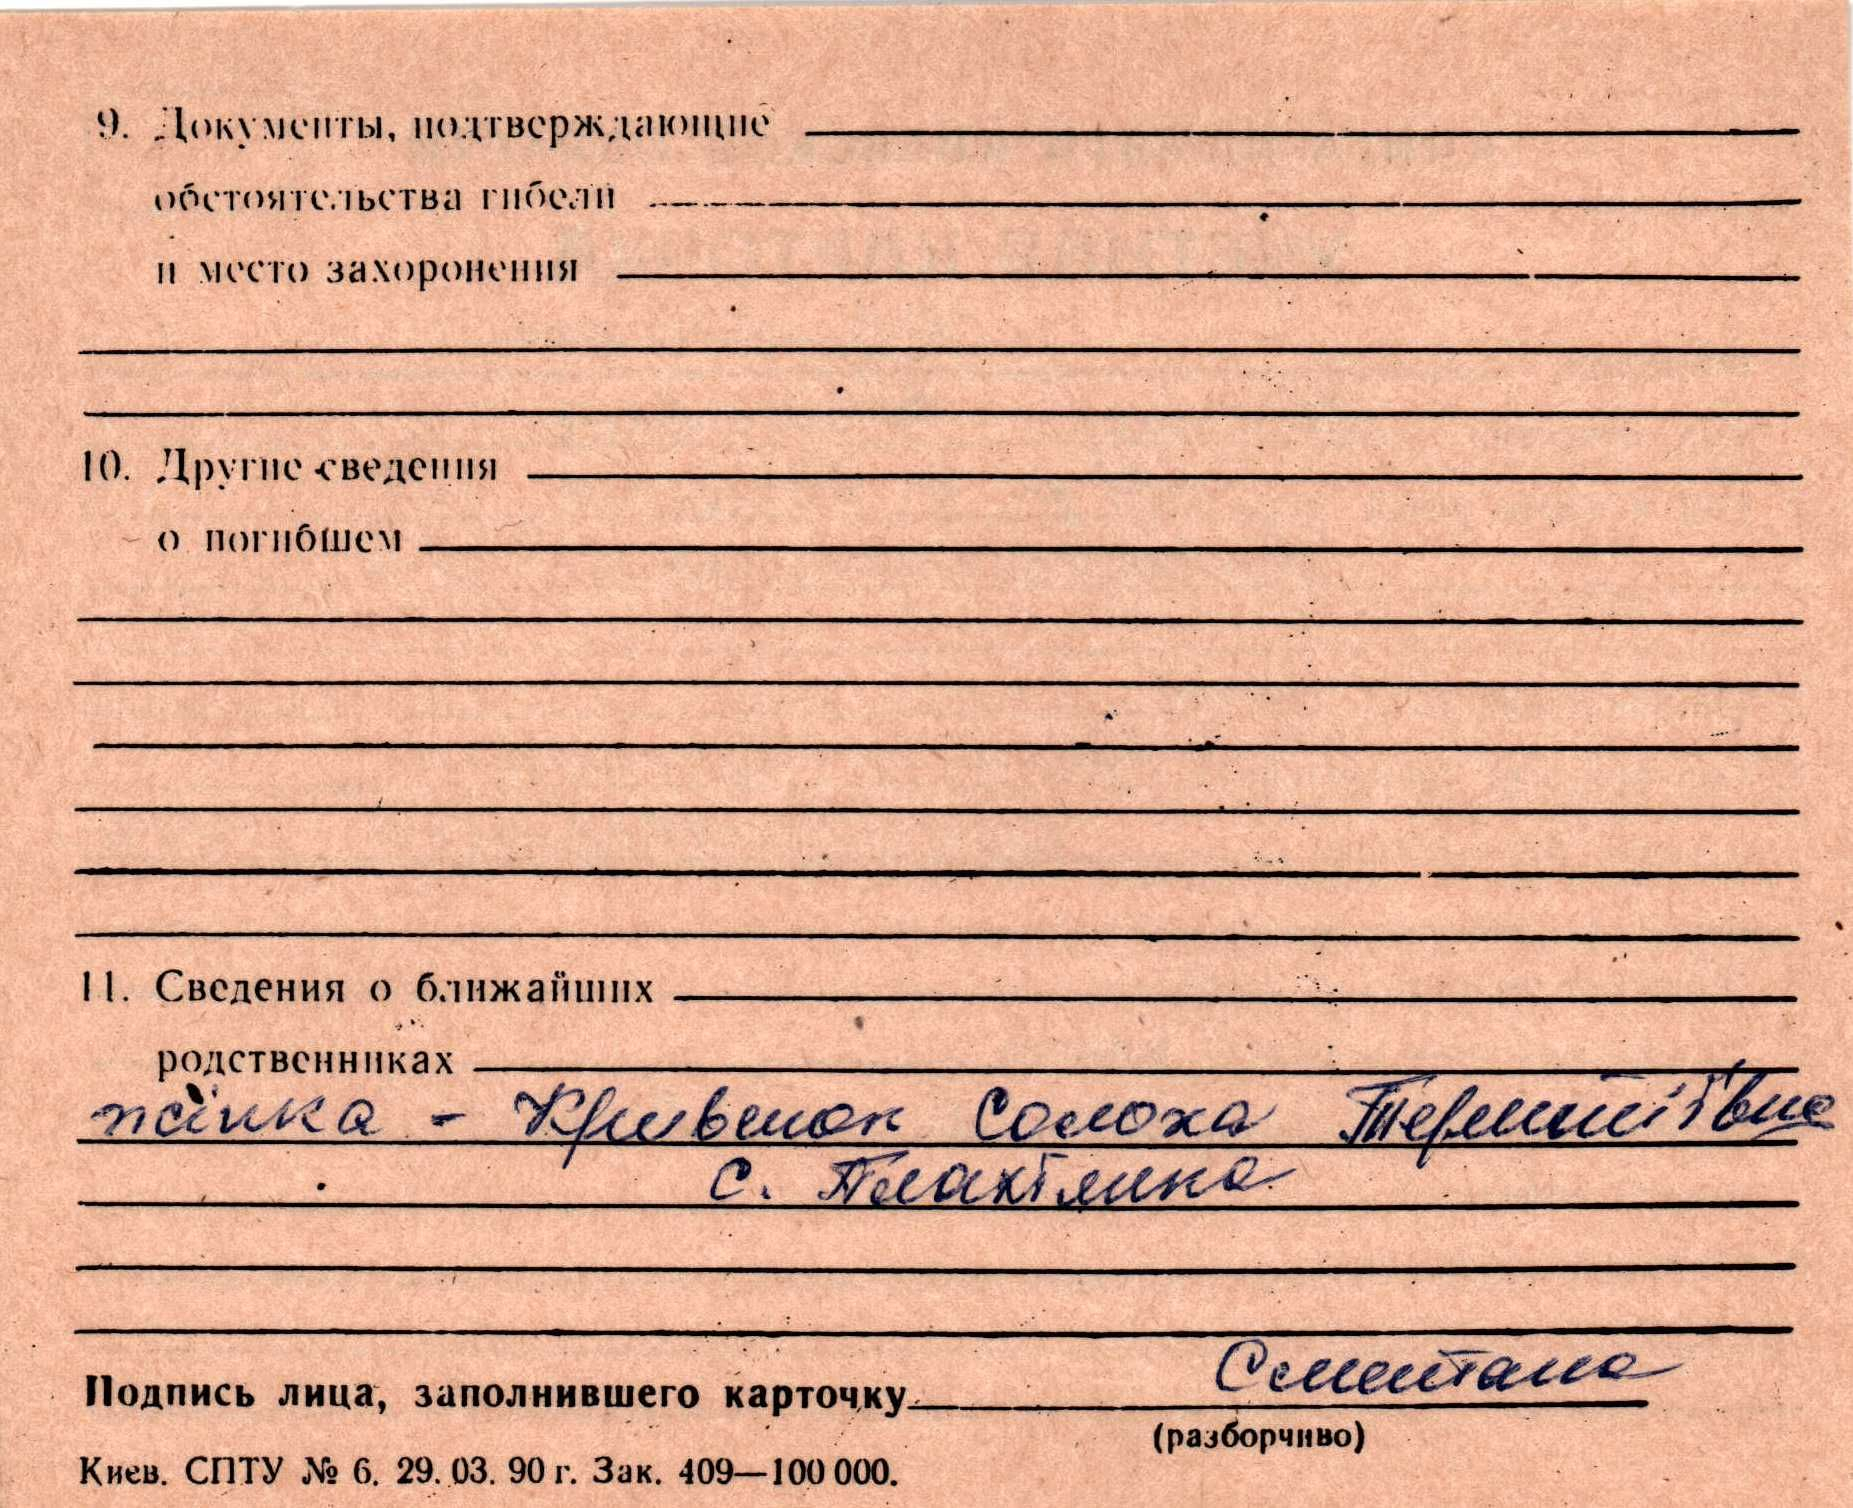 9. Документы, подтверждающие
обстоятельства гибели
и место захоронения
10. Другие сведения
о погибшем
11. Сведения о ближайших
родственниках
жінка - Кривенок Солоха
с. Плахтянка
Сметана
Подпись лица, заполнившего карточку
(разборчиво)
Киев. СПТУ № 6. 29. 03. 90 г. Зак. 409—100 000.